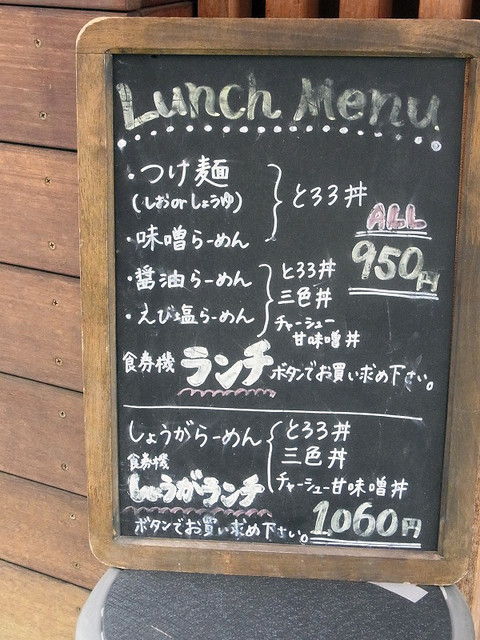 Lunch Menu
・つけ麺
(しおorしょうゆ)
・味噌らーめん
とろろ丼
ALL
950円
・醤油らーめん
・えび塩らーめん
とろろ丼
三色丼
チャーシュー
甘味噌丼
食券機 ランチ ボタンでお買い求め下さい。
しょうがらーめん
とろろ丼
三色丼
チャーシュー甘味噌丼
食券機
しょうがランチ
ボタンでお買い求め下さい。
1060円